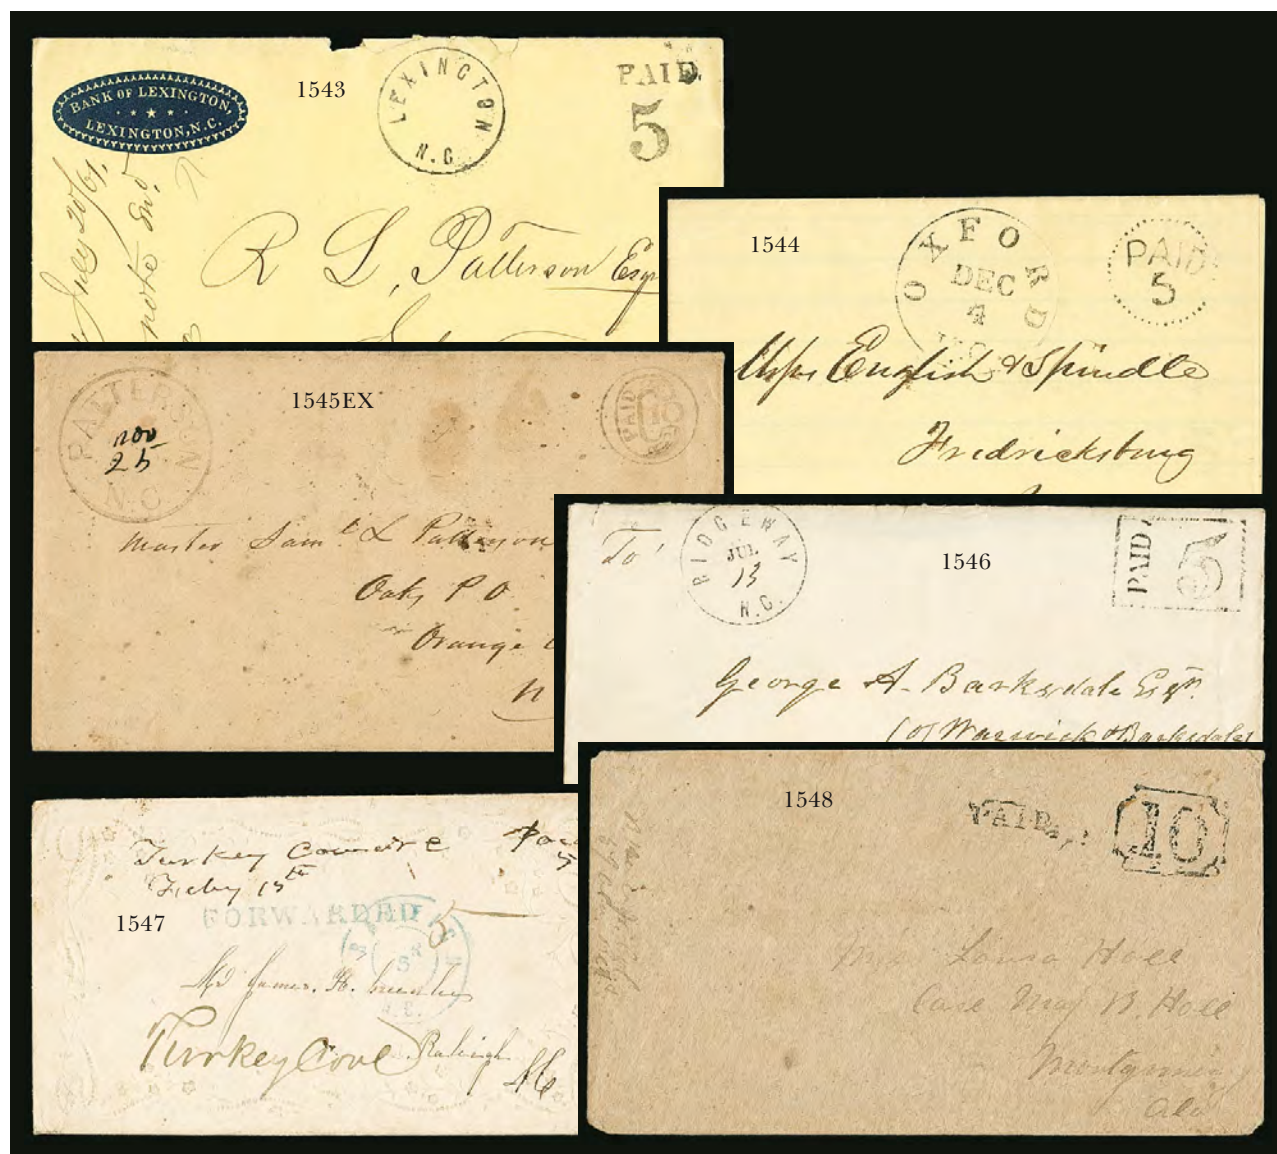 1543
BANK OF LEXINGTON,
LEXINGTON, N.C.
LEXINGTON
N.C.
PAID
5
July 20/61.
note
R L, Patterson Esqr
1544
OXFORD
DEC
4
PAID
5
English & Spindle
Fredricksburg
1545EX
PATTERSON
nov
25
N.C.
PAID
10
Master Saml L Patterson
Oaks P O
Orange
N
1546
To
RIDGEWAY
JUL
13
N.C.
PAID
5
George A. Barksdale Esqr.
(of Warwick & Barksdale)
1547
Turkey
Feby 15th
FORWARDED
5
James. H.
Turkey Cove Raleigh
1548
PAID
10
Miss Laura Hall
Care Maj B. Hall
Montgomery
Ala